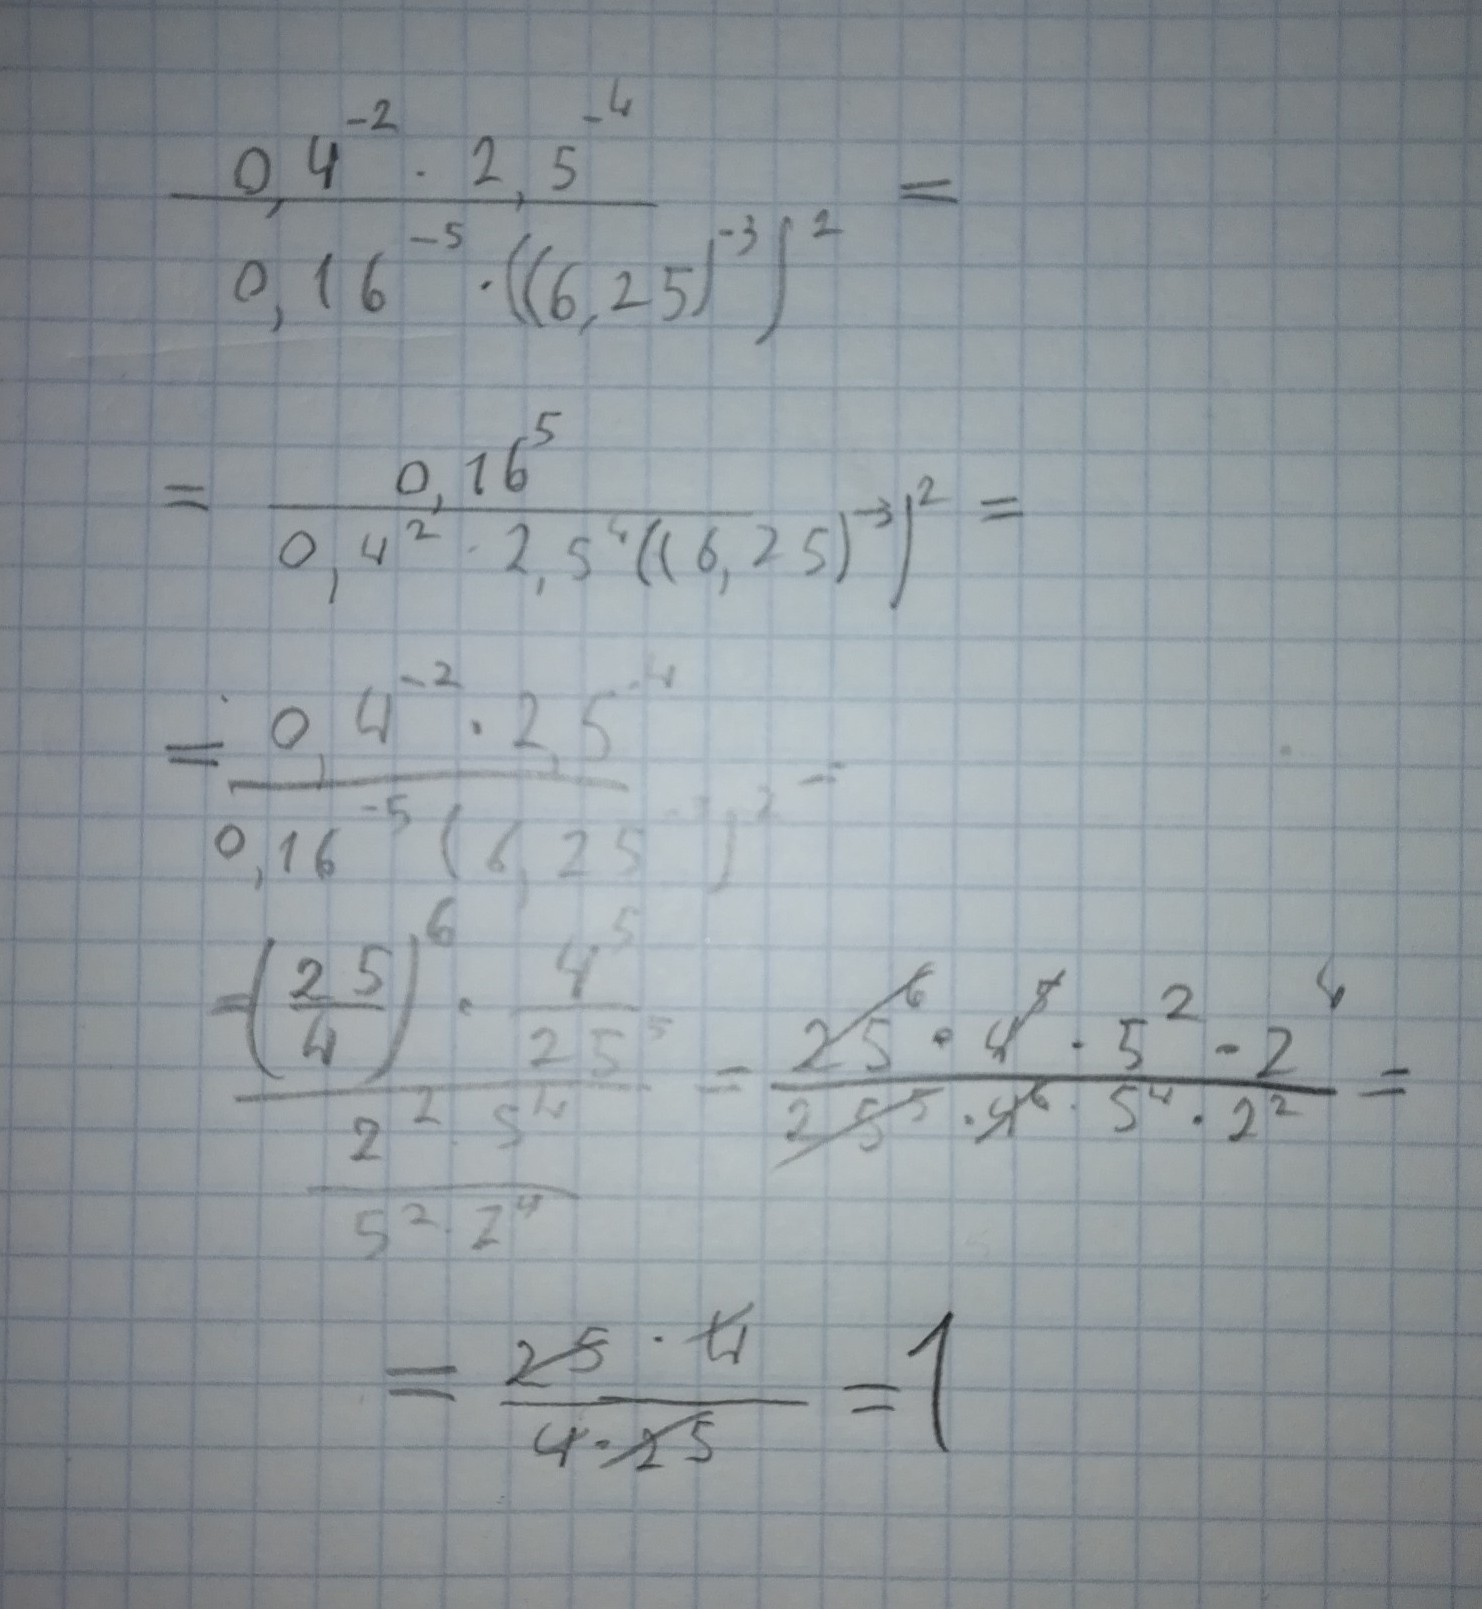 0,4^-2 · 2,5^-4
0,16^-5 · ((6,25)^-3)^2 =
= 0,16^5
0,4^2 · 2,5^4 ((6,25)^-3)^2 =
= 0,4^-2 · 2,5^-4
0,16^-5 (6,25^-3)^2 =
= (25/4)^6 · 4^5/25^5
2^2 · 5^4
5^2 · 2^4
= 25^6 · 4^5 · 5^2 · 2^4
25^5 · 4^6 · 5^4 · 2^2 =
= 25 · 4
4 · 25 = 1